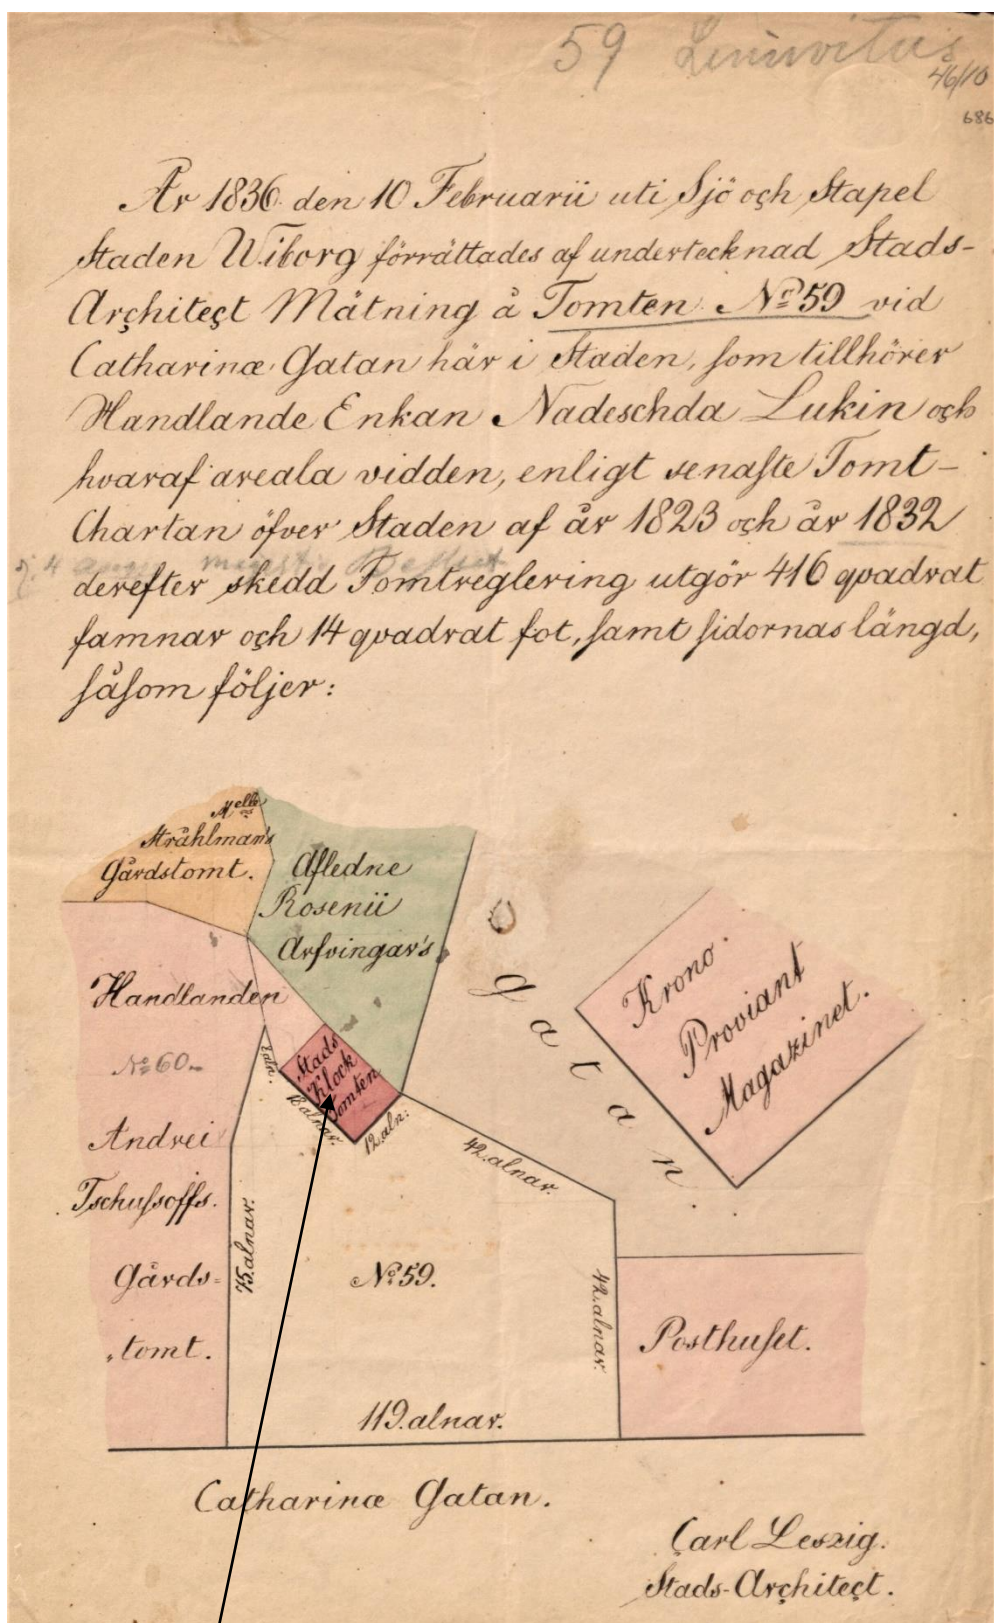 59
46/10
686
År 1836 den 10 Februarii uti Sjö och Stapel
Staden Wiborg förrättades af undertecknad Stads-
Architect Mätning å Tomten No 59 vid
Catharinæ Gatan här i Staden, som tillhörer
Handlande Enkan Nadeschda Lukin och
hvaraf areala vidden, enligt senaste Tomt-
Chartan öfver Staden af år 1823 och år 1832
derefter skedd Tomtreglering utgör 416 qvadrat
famnar och 14 qvadrat fot, samt sidornas längd,
såsom följer:
Melle
Stråhlman's
Gårdstomt.
Afledne
Rosenii
Arfvingar's
Handlanden
No 60.
Andrei
Tschussoffs.
Gårds=
tomt.
Stads
Klock
Tomten
8 aln.
18 alnar.
12. aln:
42. alnar.
75. alnar.
No 59.
42. alnar.
119. alnar.
gatan.
Krono
Proviant
Magazinet.
Posthuset.
Catharinæ Gatan.
Carl Leszig.
Stads-Architect.